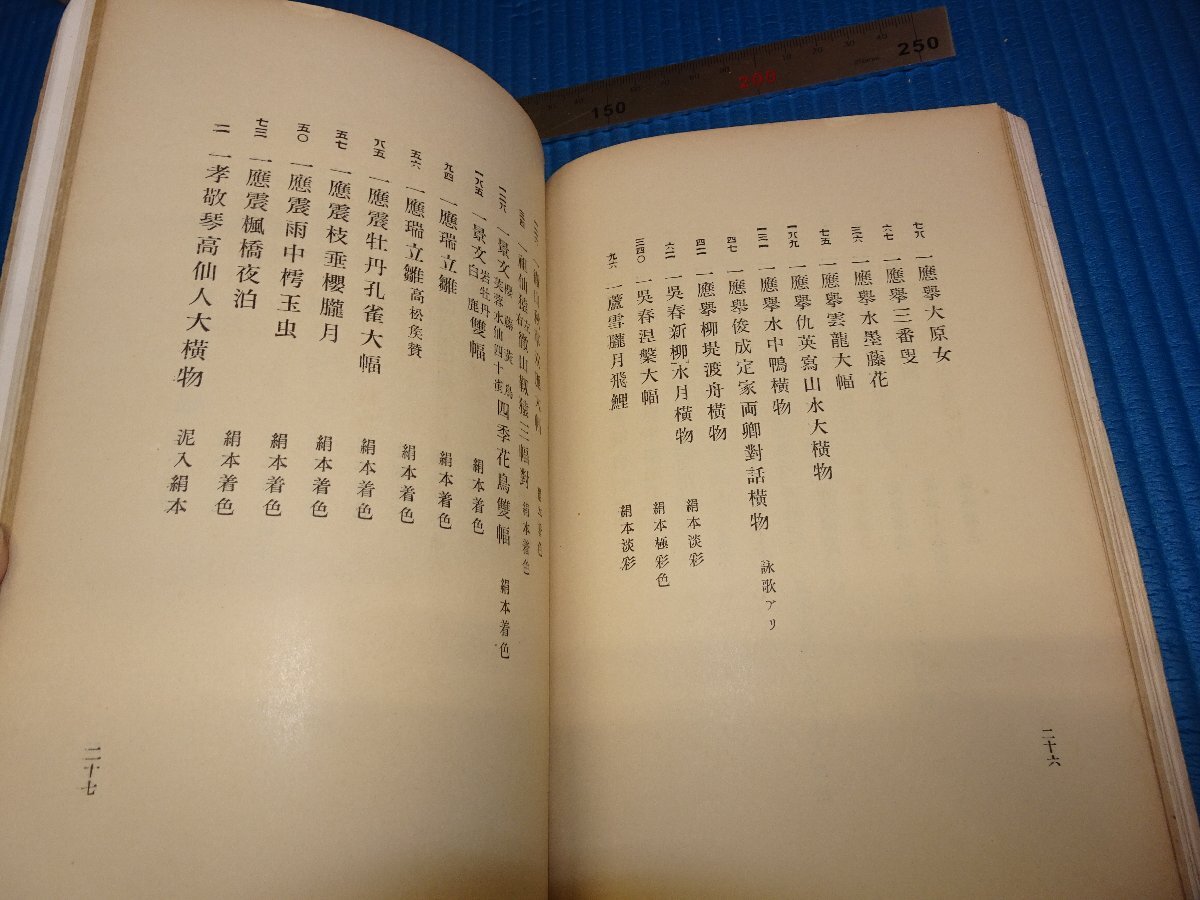 七八 一應擧大原女
六七 一應擧三番叟
三六 一應擧水墨藤花
七五 一應擧雲龍大幅
一八九 一應擧仇英寫山水大橫物
一三一 一應擧水中鴨橫物
四七 一應擧俊成定家両卿對話橫物 詠歌アリ
四一 一應擧柳堤渡舟橫物 絹本淡彩
六二 一吳春新柳水月橫物 絹本極彩色
三四〇 一吳春涅槃大幅 絹本淡彩
九六 一蘆雪朧月飛鯉
二十六
一祖仙猿 三幅對 絹本着色
一二八 一景文 四季花鳥雙幅 絹本着色
一八五 一景文岩牡丹白鹿雙幅 絹本着色
九四 一應瑞立雛 絹本着色
五六 一應瑞立雛高松矦賛 絹本着色
八五 一應震牡丹孔雀大幅 絹本着色
五七 一應震枝垂櫻朧月 絹本着色
五〇 一應震雨中樗玉虫 絹本着色
七三 一應震楓橋夜泊 絹本着色
二 一孝敬琴高仙人大橫物 泥入絹本
二十七
150
200
250